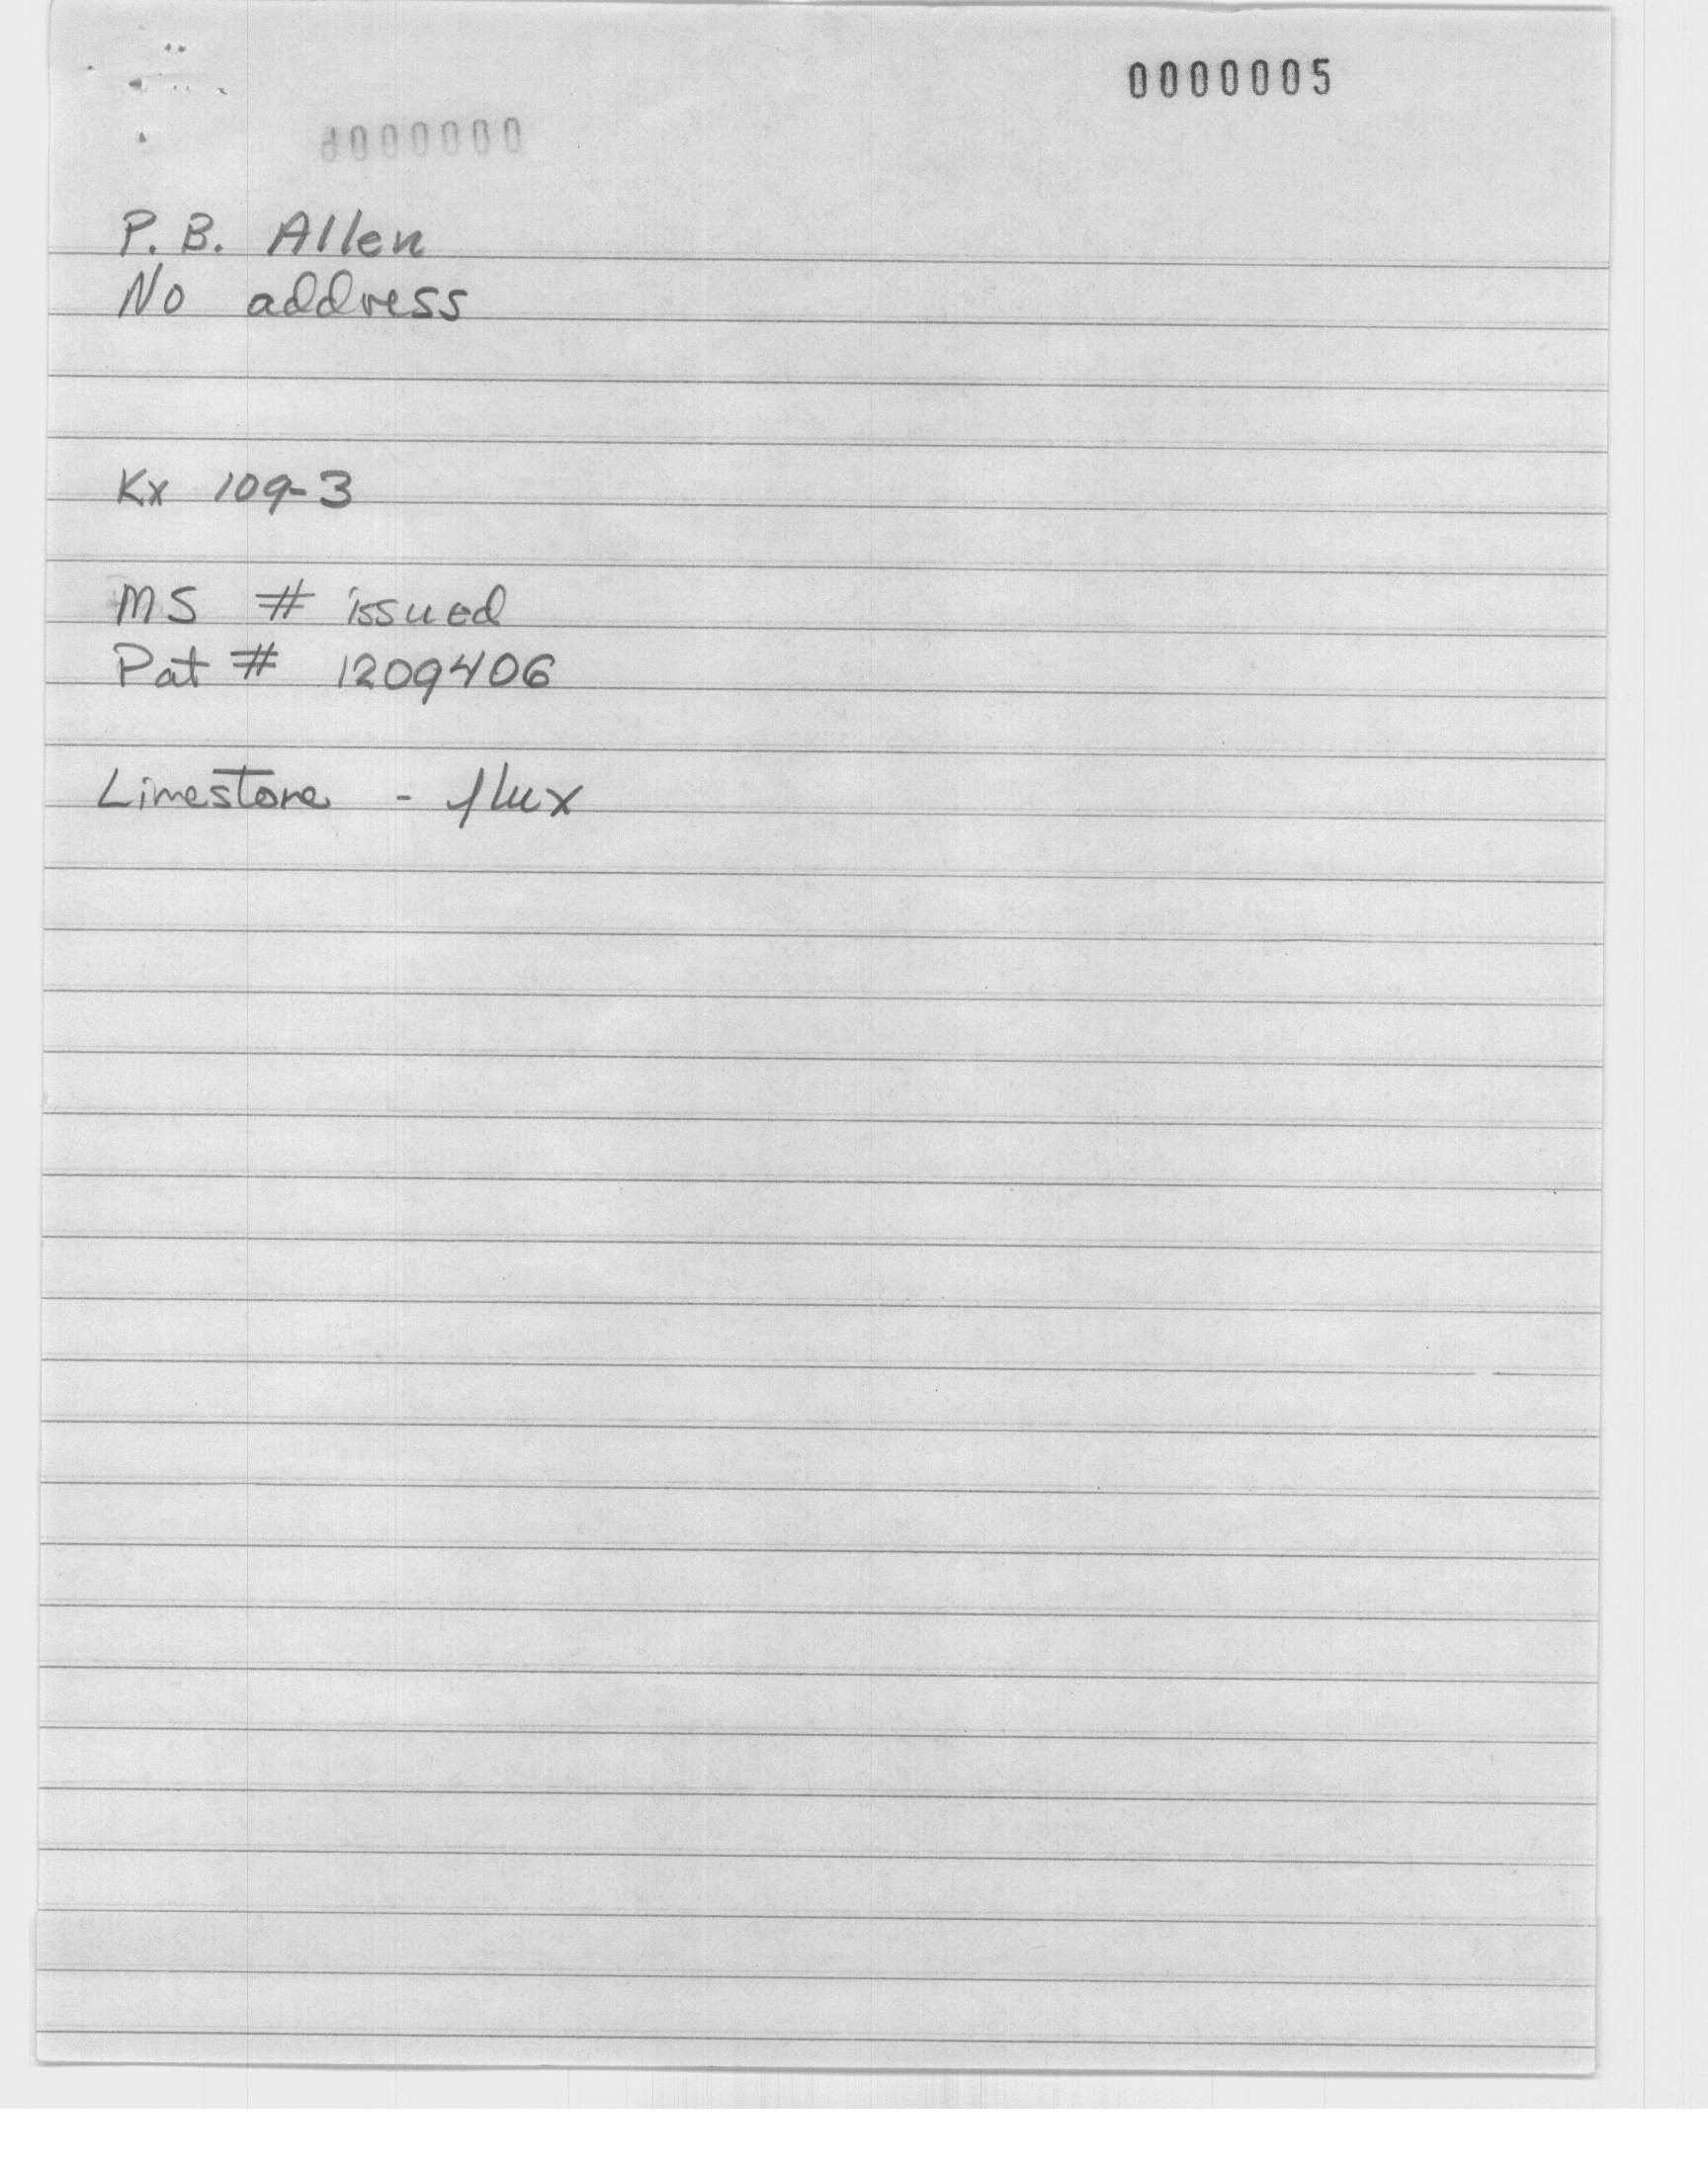 0000005
P. B. Allen
No address
Kx 109-3
MS # issued
Pat # 1209406
Limestone - flux